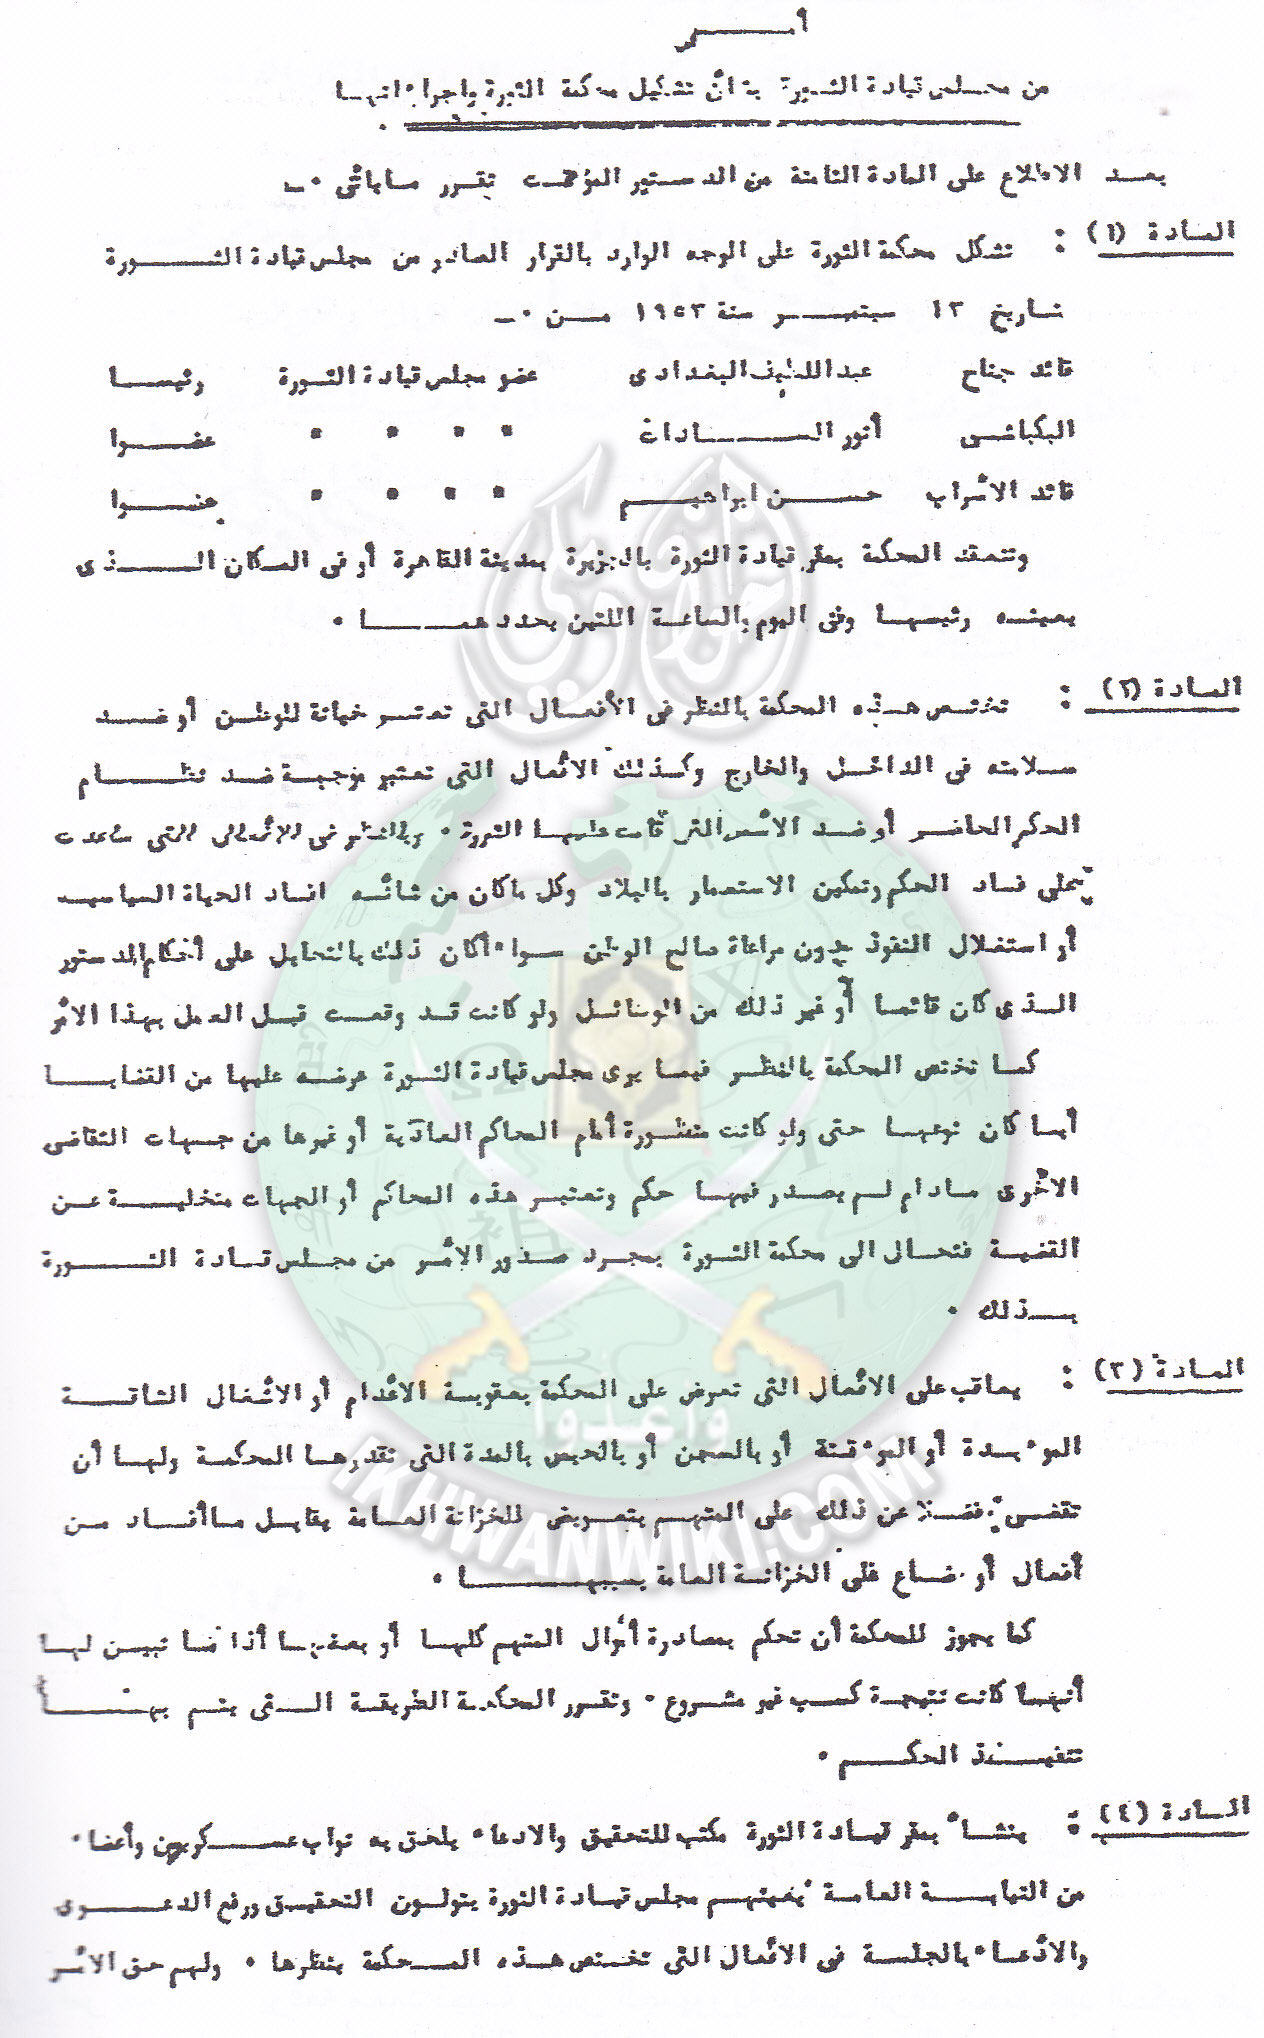 أمــــر
من مجلس قيادة الثورة بشأن تشكيل محكمة الثورة واجراءاتها
بعد الاطلاع على المادة الثامنة من الدستور المؤقت تقرر مايأتى ٠ــ
المادة (١) : تشكل محكمة الثورة على الوجه الوارد بالقرار الصادر من مجلس قيادة الثورة
بتاريخ ١٣ سبتمبر سنة ١٩٥٣ من ٠ــ
قائد جناح عبد اللطيف البغدادى عضو مجلس قيادة الثورة رئيسا
البكباشى أنور السادات " " " " عضوا
قائد الأسراب حسن ابراهيم " " " " عضوا
وتنعقد المحكمة بمقر قيادة الثورة بالجزيرة بمدينة القاهرة أو فى المكان الذى
يعينه رئيسها وفى اليوم والساعة اللتين يحددهما ٠
المادة (٢) : تختص هذه المحكمة بالنظر فى الأفعال التى تعتبر خيانة للوطن أو ضد
سلامته فى الداخل والخارج وكذلك الأفعال التى تعتبر موجهة ضد نظام
الحكم الحاضر أو ضد الأسس التى قامت عليها الثورة ٠ وبالنظر فى الأفعال التى ساعدت
على فساد الحكم وتمكين الاستعمار بالبلاد وكل ماكان من شأنه افساد الحياة السياسيه
أو استغلال النفوذ بدون مراعاة صالح الوطن سواء أكان ذلك بالتحايل على أحكام الدستور
الذى كان قائما أو غير ذلك من الوسائل ولو كانت قد وقعت قبل العمل بهذا الأمر
كما تختص المحكمة بالنظر فيما يرى مجلس قيادة الثورة عرضه عليها من القضايا
أيا كان نوعها حتى ولو كانت منظورة أمام المحاكم العادية أو غيرها من جهات التقاضى
الأخرى مادام لم يصدر فيها حكم وتعتبر هذه المحاكم أو الجهات متخلية عن
القضية فتحال الى محكمة الثورة بمجرد صدور الأمر من مجلس قيادة الثورة
بذلك ٠
المادة (٣) : يعاقب على الأفعال التى تعرض على المحكمة بعقوبة الأعدام أو الأشغال الشاقة
الموءبدة أو الموءقتة أو بالسجن أو بالحبس بالمدة التى تقدرها المحكمة ولها أن
تقضى فضلا عن ذلك على المتهم بتعويض للخزانة العامة مقابل ماأفاد من
أفعال أو ضاع على الخزانة العامة بسببها ٠
كما يجوز للمحكمة أن تحكم بمصادرة أموال المتهم كلها أو بعضها أذا ما تبين لها
أنها كانت نتيجة كسب غير مشروع ٠ وتقرر المحكمة الطريقة التى يتم بها
تنفيذ الحكم ٠
المادة (٤) : ينشأ بمقر قيادة الثورة مكتب للتحقيق والادعاء يلحق به نواب عسكريين وأعضاء
من النيابة العامة يعينهم مجلس قيادة الثورة يتولون التحقيق ورفع الدعوى
والأدعاء بالجلسة فى الأفعال التى تختص هذه المحكمة بنظرها ٠ ولهم حق الأمر
إخوان ويكي
وأعدوا
IKHWANWIKI.COM